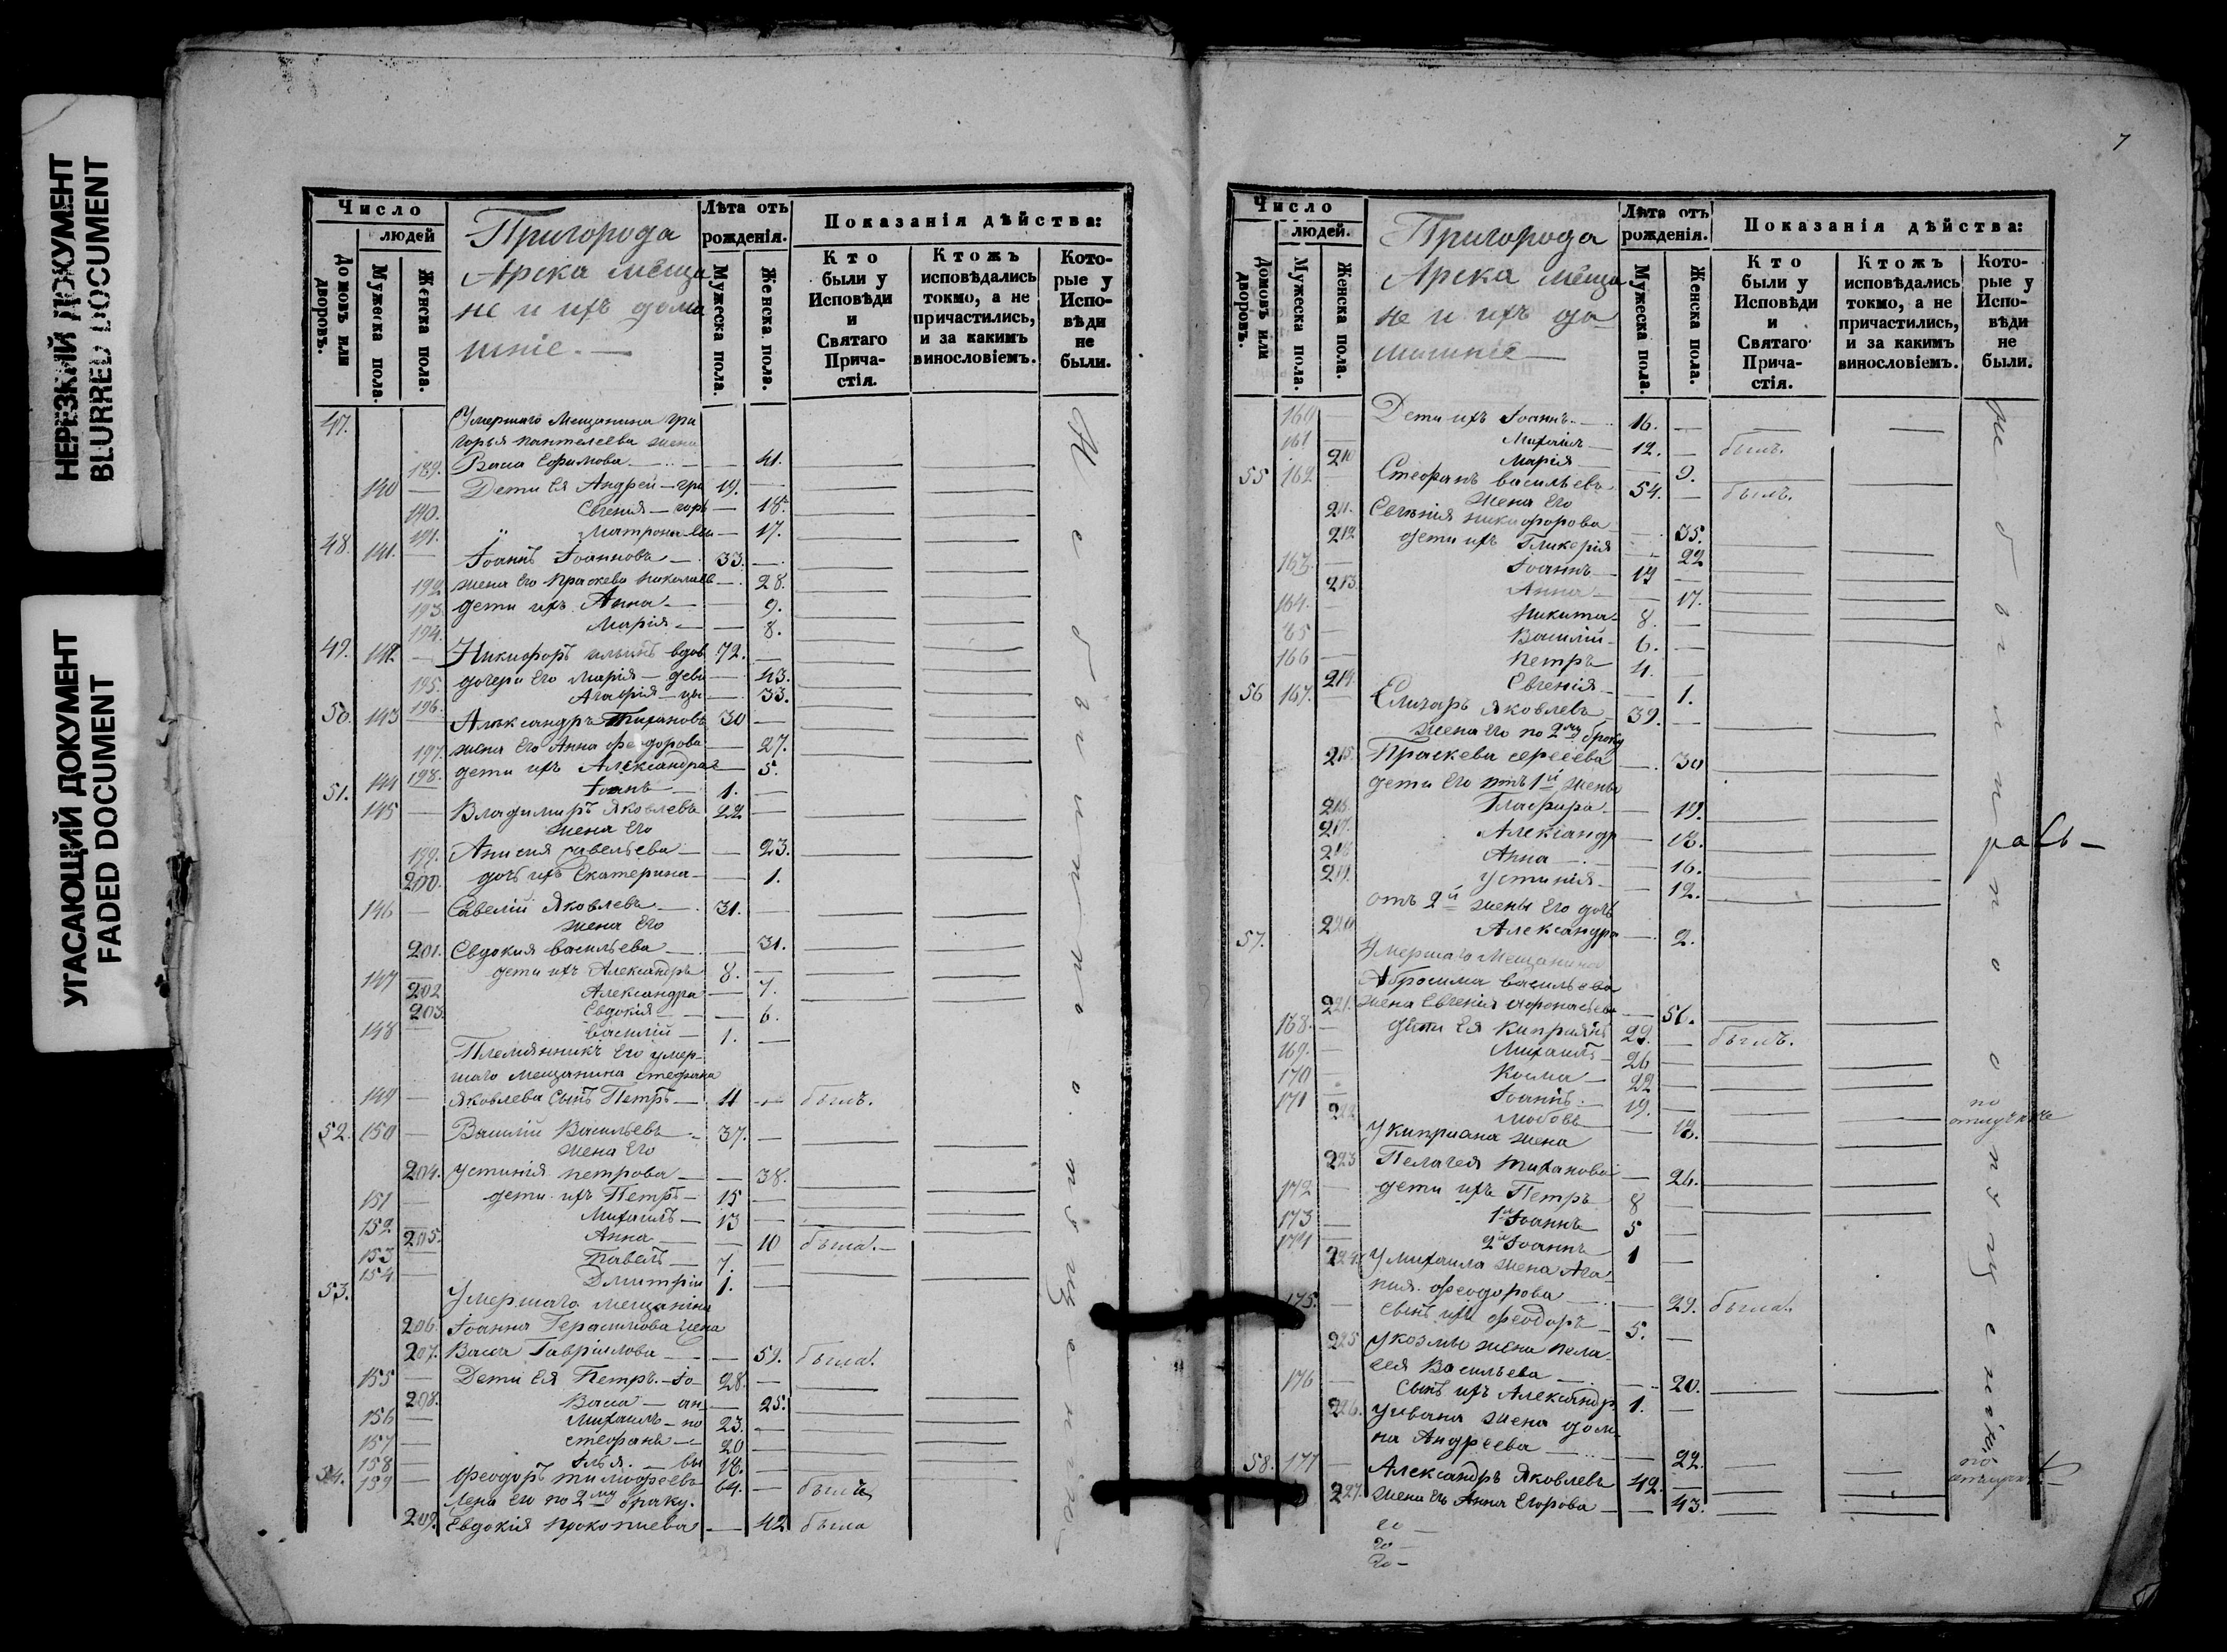 НЕРЕЗКИЙ ДОКУМЕНТ
BLURRED DOCUMENT
УГАСАЮЩИЙ ДОКУМЕНТ
FADED DOCUMENT
Число
людей
Домовъ или дворовъ.
Мужеска пола.
Женска пола.
Пригорода
Арска меща
не и ихъ дома
шніе. —
Лѣта отъ рожденія.
Мужеска пола.
Женска пола.
Показанія дѣйства:
Кто были у Исповѣди и Святаго Прича- стія.
Ктожъ исповѣдались токмо, а не причастились, и за какимъ винословіемъ.
Кото- рые у Испо- вѣди не были.
47. Умершаго Мещанина гри
горья пантелеева жена
189. Васа Ефимова — 41.
140 — Дети Ея Андрей — гри 19. —
190. Евгения — горь — 18.
191. " Матрона — 17.
48. 141. — Іоаннъ Іоанновъ — 33. —
192 жена Его Праскева Николаев — 28.
193 дети ихъ Анна — 9.
194. Марія — 8.
49. 142 — Никифоръ ильинъ вдов 72. —
195. дочери Его Марія — деви — 43.
196. Агафія — цы — 33.
50. 143 — Александръ Тихановъ 30 —
197. жена Его Анна феодорова — 27.
198. дети ихъ Александра — 5.
144 — Іоаннъ — 1. —
51. 145 — Владимиръ Яковлевъ 22 —
жена Его
199. Анисия савельева — 23.
200. дочь ихъ Екатерина — 1.
146 — Савелій Яковлевъ — 31. —
жена Его
201. Евдокия васильева — 31.
147 — дети ихъ Александръ 8. —
202 Александра — 7.
203. Евдокія — 6.
148 — Василій — 1. —
Племянникъ Его умер-
шаго мещанина стефана
149 — Яковлева сынъ Петръ — 11 — былъ.
52. 150 — Василій Васильевъ — 37. —
жена Его
204. Устинія петрова — 38.
151 — дети ихъ Петръ — 15 —
152 — Михаилъ — 13 —
205. Анна — 10 была. —
153 — Павелъ — 7. —
154 — Дмитрій 1. —
53. Умершаго мещанина
206. Іоанна Герасимова жена
207. Васса Гаврилова — 59. была.
155 — Дети Ея Петръ. — Іо 28. —
208. Васа — ан — 25.
156 — Михаилъ — но 23. —
157 — стефанъ — 20 —
158 — Илья — вы 18. —
54. 159 — Феодоръ тимофеевъ 64. — былъ
Жена его по 2му браку.
209. Евдокія прокопиева — 42 была
7
Число
людей.
Домовъ или дворовъ.
Мужеска пола.
Женска пола.
Пригорода
Арска меща
не и ихъ до
машніе —
Лѣта отъ рожденія.
Мужеска пола.
Женска пола.
Показанія дѣйства:
Кто были у Исповѣди и Святаго Прича- стія.
Ктожъ исповѣдались токмо, а не причастились, и за какимъ винословіемъ.
Кото- рые у Испо- вѣди не были.
160 — Дети ихъ Іоаннъ — 16. —
161 — Михаилъ — 12. — былъ.
210 Марія — 9.
55 162. Стефанъ васильевъ 54. — былъ.
жена Его
211. Евгения никифорова — 35.
212 дети ихъ Гликерія — 22
163. — Іоаннъ — 19 —
213. Анна — 17.
164. — Никита — 8. —
65 — Василій — 6. —
166 — Петръ 4. —
214. Евгенія — 1.
56 167. — Елизаръ Яковлевъ 39. —
жена Его по 2му браку
215. Праскева сергеева — 30
дети Его отъ 1й жены
216. Глафира — 19.
217. Александр — 18.
218 Анна — 16.
219. Устинія — 12.
отъ 2й жены Его дочь
220 Александра — 2.
57. Умершаго Мещанина
Абросима васильева
221. жена Евгения афонасьева — 51.
168. — дети Ея Киприянъ 29. — былъ.
169. — Михаилъ 26 —
170 — Косма — 22 —
171 — Іоаннъ — 19. —
222. Любовь — 18.
по отлучкѣ
У киприана жена
223 Пелагея тиханова — 26.
172 — дети ихъ Петръ 8 —
173 — 1й Іоаннъ 5 —
174 — 2й Іоаннъ 1 —
224. У михаила жена Ага-
пия феодорова — 29. была.
175. — сынъ ихъ Феодоръ 5. —
225 У козмы жена пела-
гея Васильева — 20.
176 — сынъ ихъ Александр. 1. —
226. У ивана жена дом-
на Андреева — 22.
58. 177 — Александръ Яковлевъ 42. —
227. жена Его Анна Егорова — 43.